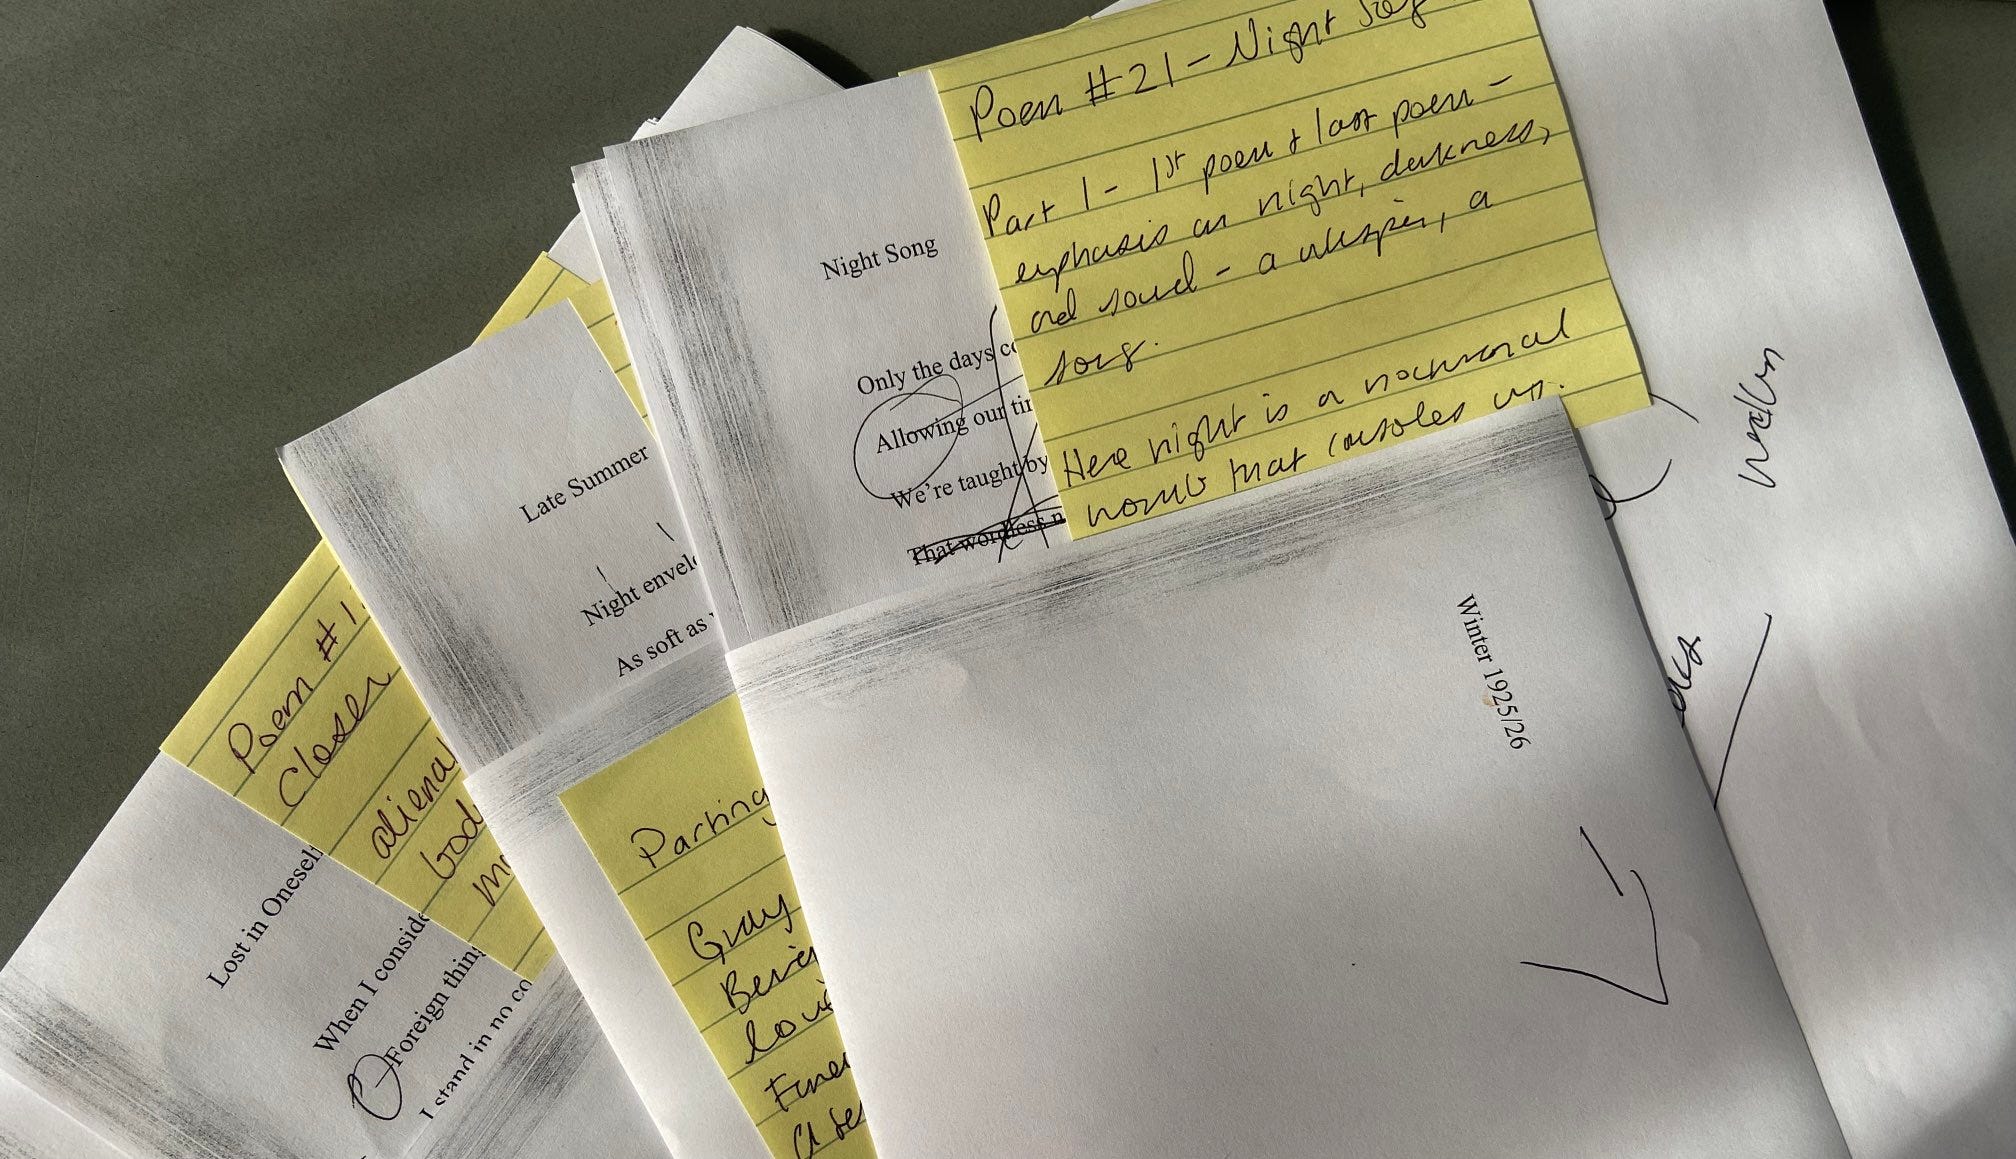 Poem #21 - Night Song
Part 1 - 1st poem & last poem -
emphasis on night, darkness,
and sound - a whisper, a
song.
Here night is a nocturnal
womb that consoles us.
Night Song
Only the days
Allowing our
We're taught by
That wordless
Late Summer
Night
As soft as
Poem #1
Closer
Lost in Oneself
When I
Foreign
I stand in no
Parting
Gray
Winter 1925/26